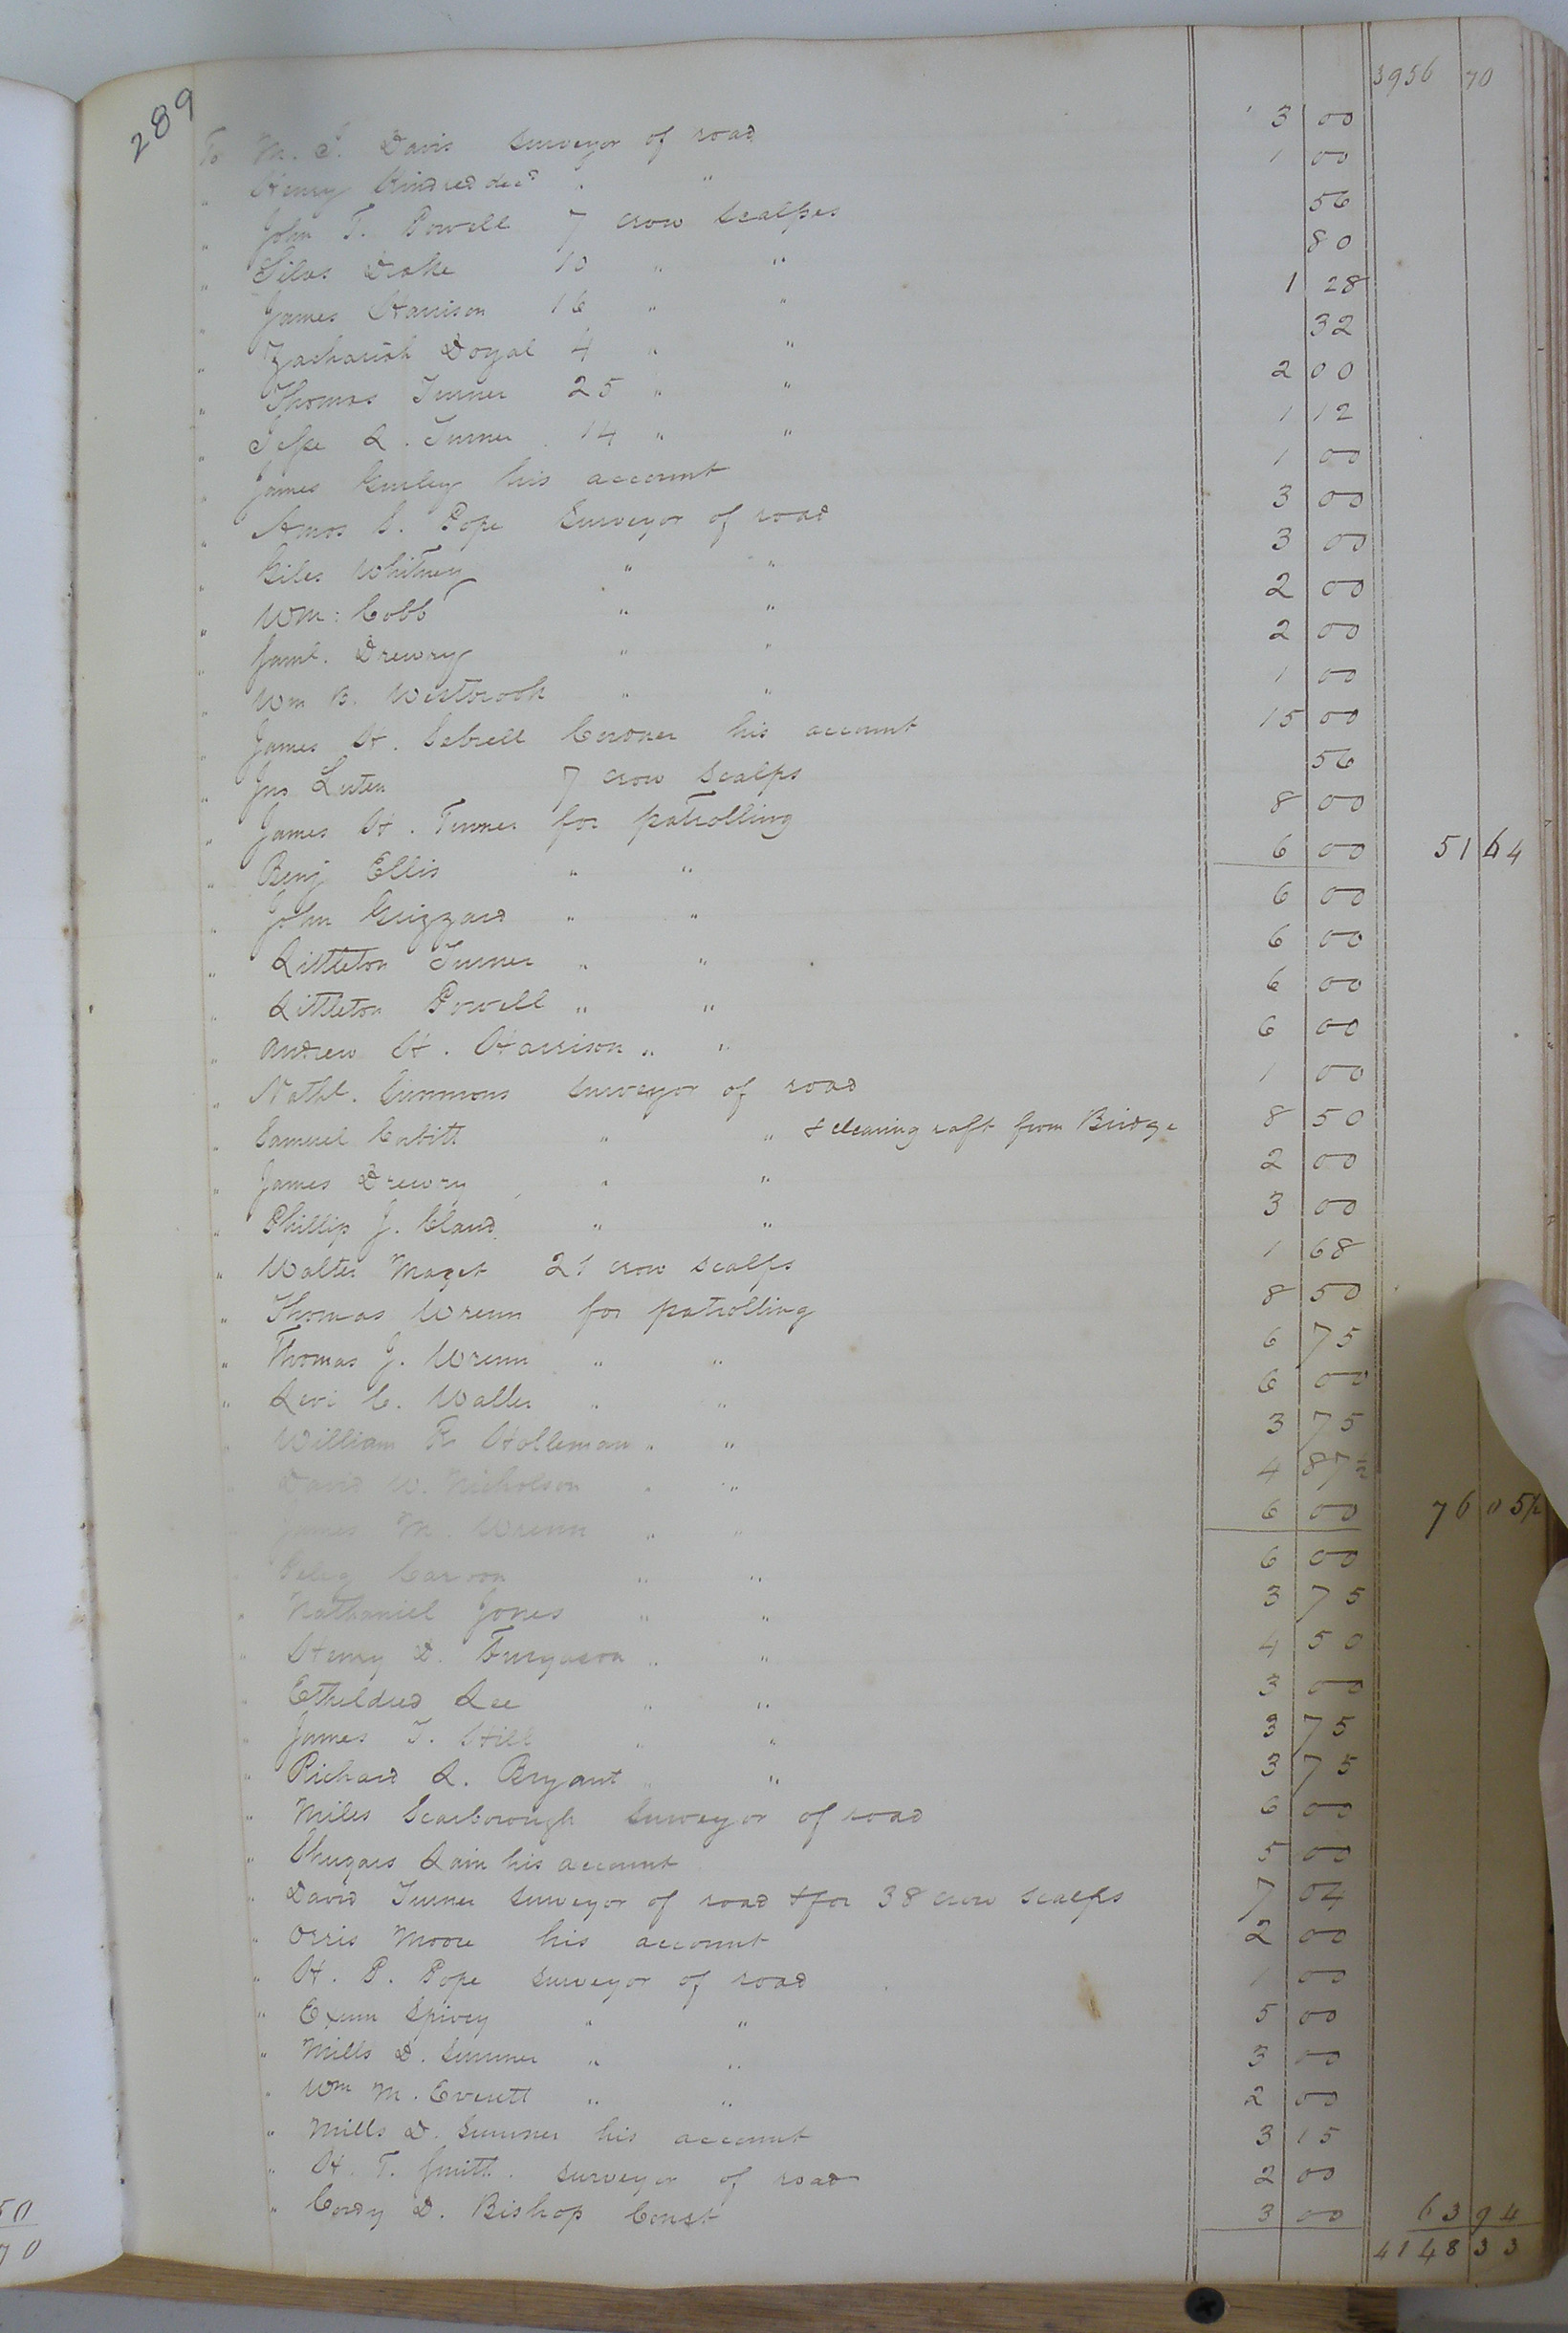 289
3956 70
To M. T. Davis Surveyor of road 3 00
" Henry Kindred decd " " 1 00
" John T. Powell 7 crow Scalpes 56
" Silas Drake 10 " " 80
" James Harrison 16 " " 1 28
" Zachariah Doyal 4 " " 32
" Thomas Turner 25 " " 2 00
" Jesse L. Turner 14 " " 1 12
" James Gurley his account 1 00
" Amos C. Pope Surveyor of road 3 00
" Giles Whitney " " 3 00
" Wm: Cobb " " 2 00
" Saml. Drewry " " 2 00
" Wm B. Westbrook " " 1 00
" James H. Sebrell Coroner his account 15 00
" Jno Luter 7 crow Scalps 56
" James H. Turner for patrolling 8 00
" Benj Ellis " " 6 00 51 64
" John Grizzard " " 6 00
" Littleton Turner " " 6 00
" Littleton Powell " " 6 00
" Andrew H. Harrison " " 6 00
" Nathl. Simmons Surveyor of road 1 00
" Samuel Corbitt " " & clearing raft from Bridge 8 50
" James Drewry " " 2 00
" Phillip J. Claud " " 3 00
" Walter Maget 21 crow scalps 1 68
" Thomas Wrenn for patrolling 8 50
" Thomas J. Wrenn " " 6 75
" Levi C. Waller " " 6 00
" William R Holleman " " 3 75
" David W. Nicholson " " 4 87½
" James M. Wrenn " " 6 00 76 05½
" Peleg Carson " " 6 00
" Nathaniel Jones " " 3 75
" Henry D. Furgason " " 4 50
" Etheldred Lee " " 3 00
" James T. Hill " " 3 75
" Richard L. Bryant " " 3 75
" Miles Scarborough Surveyor of road 6 00
" Lain his account 5 00
" David Turner Surveyor of road & for 38 crow scalps 7 04
" Orris Moore his account 2 00
" H. P. Pope surveyor of road 1 00
" Exum Spivey " " 5 00
" Mills D. Sumner " " 3 00
" Wm M. Everett " " 2 00
" Mills D. Sumner his account 3 15
" H. T. Smith. surveyor of road 2 00
" Cordy D. Bishop Const 3 00 63 94
4148 33
50
70